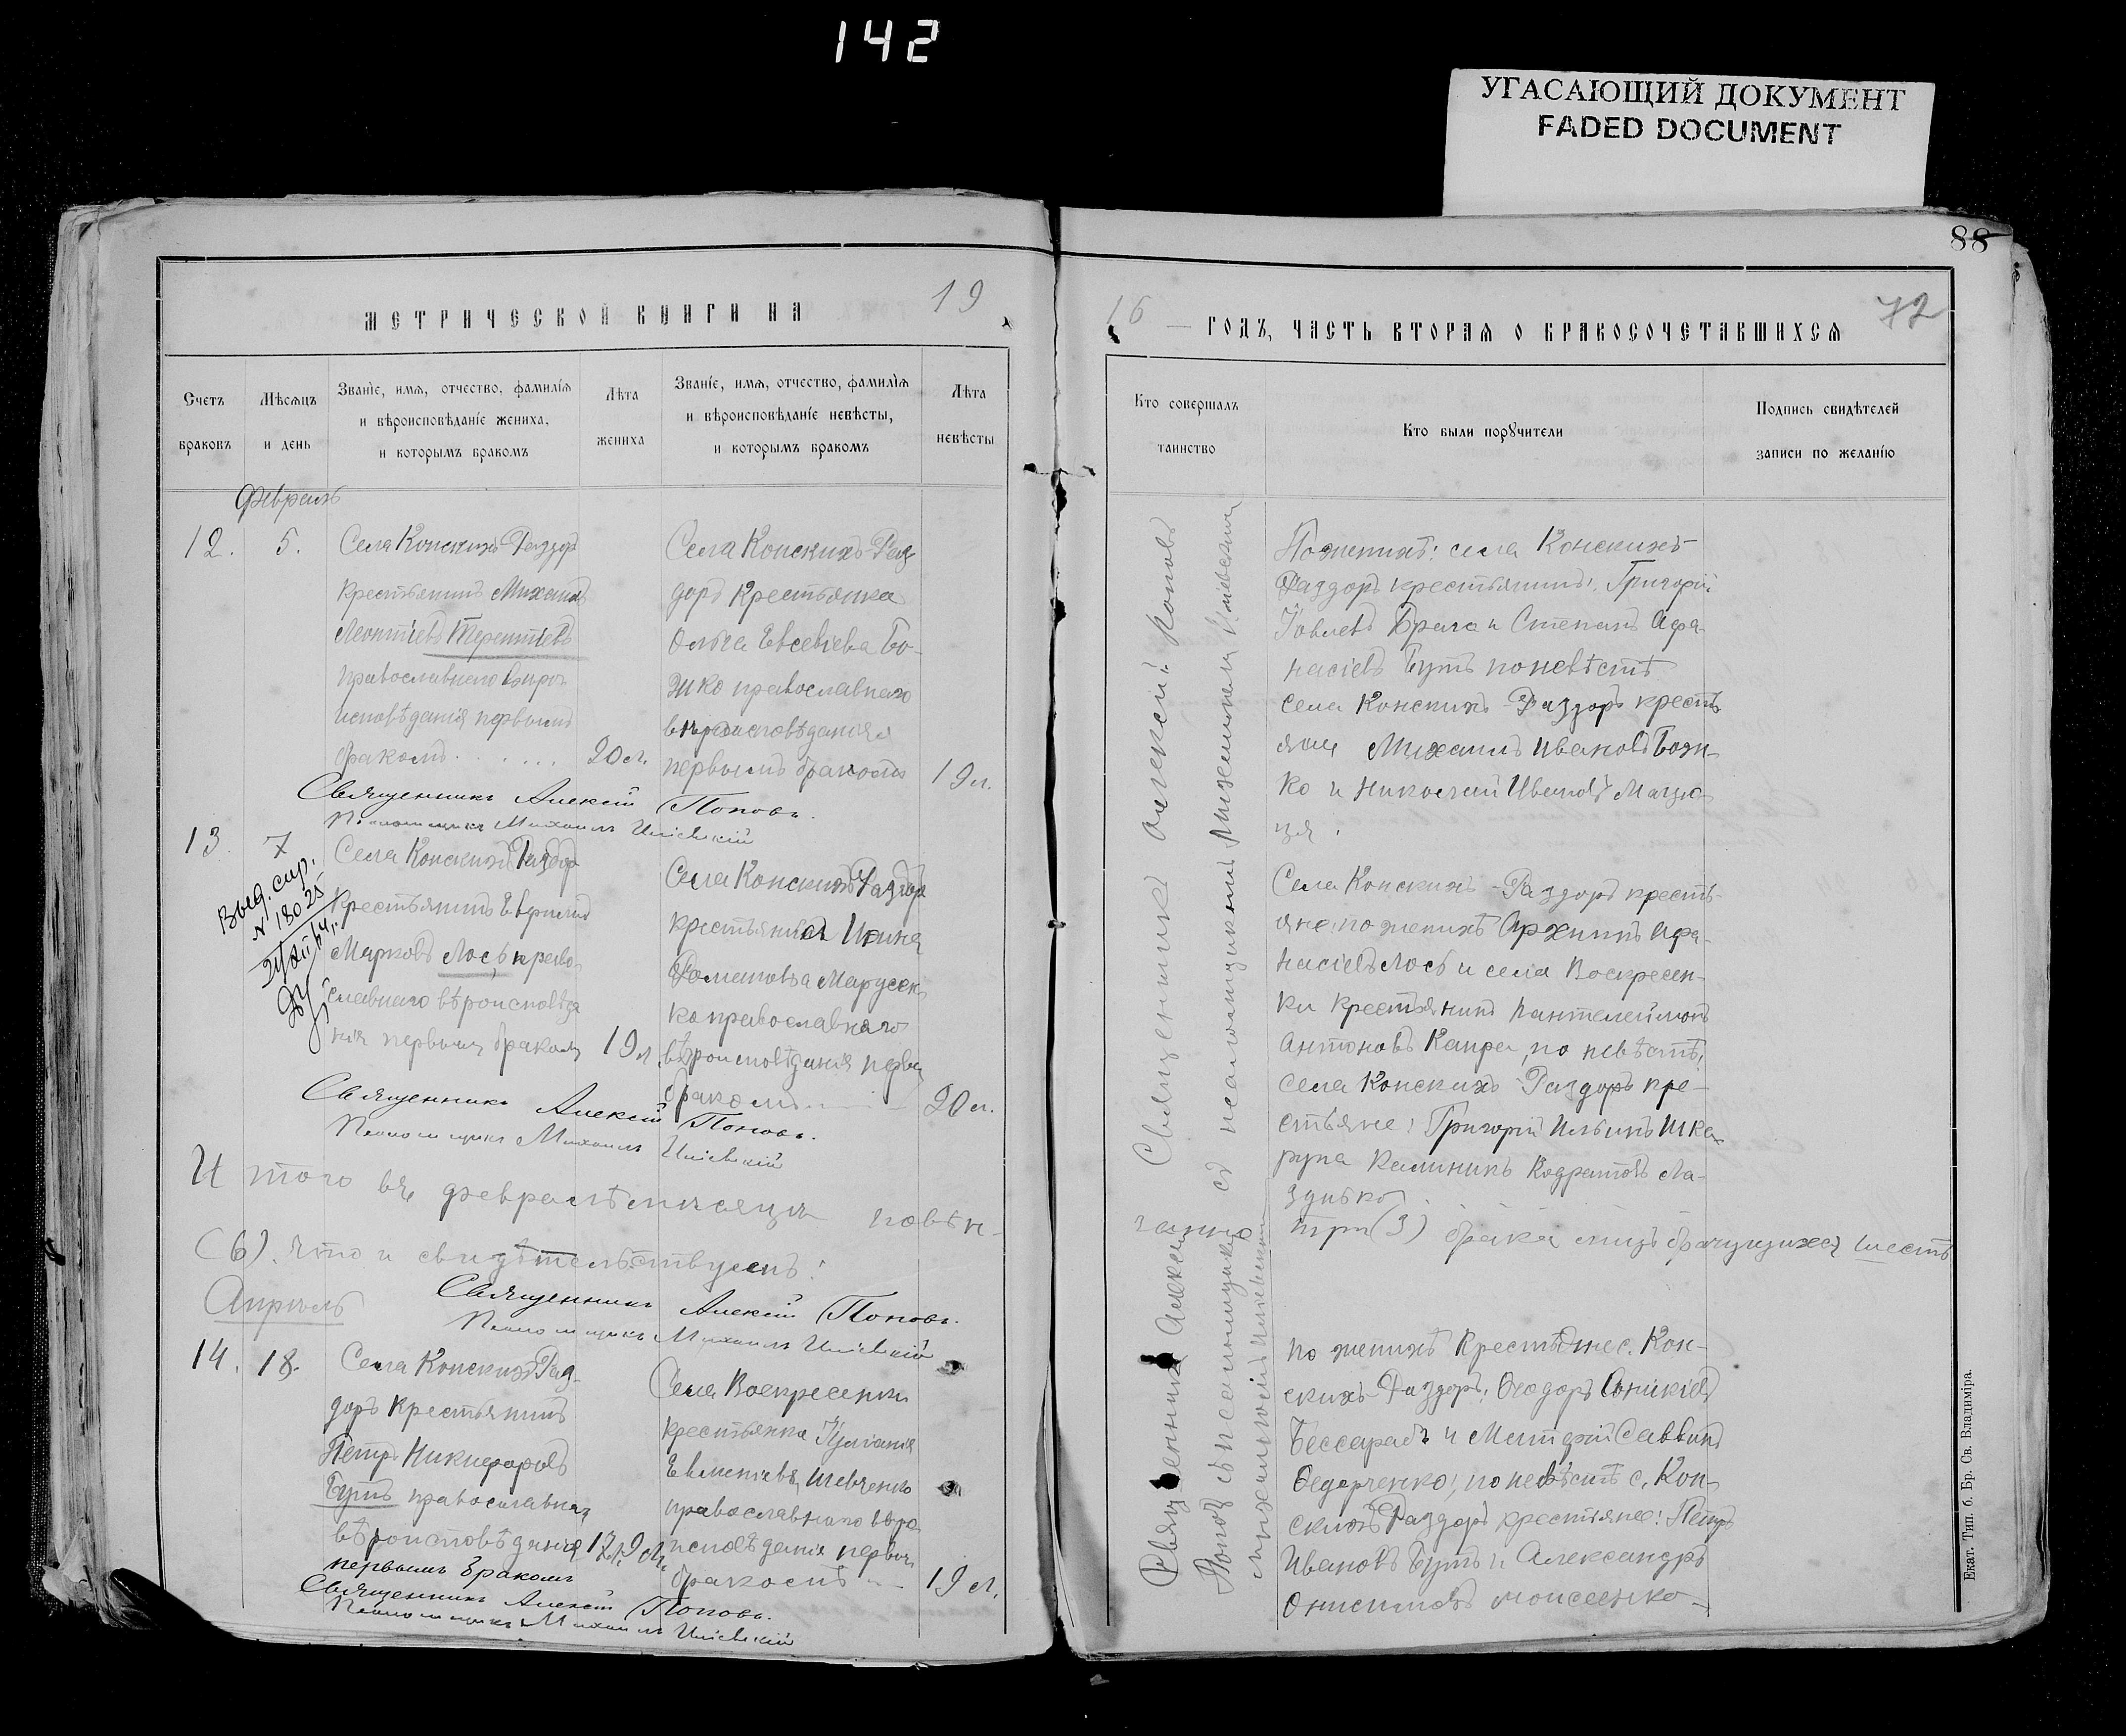 142
УГАСАЮЩИЙ ДОКУМЕНТ
FADED DOCUMENT
88
МЕТРИЧЕСКОЙ КНИГИ НА 19
Счетъ браковъ
Мѣсяцъ и день
Званіе, имя, отчество, фамилія
и вѣроисповѣданіе жениха,
и которымъ бракомъ
Лѣта жениха
Званіе, имя, отчество, фамилія
и вѣроисповѣданіе невѣсты,
и которымъ бракомъ
Лѣта невѣсты
Февраль
12.
5.
Села Конскихъ-Раздоръ
крестьянинъ Михаилъ
Леонтіевъ Терентіевъ
православнаго вѣро
исповѣданія первымъ
бракомъ
20 л.
Села Конскихъ-Раз
доръ крестьянка
Ольга Евсевіева Бо-
жко православнаго
вѣроисповѣданія
первымъ бракомъ
19 л.
Священникъ Алексій Поповъ.
Псаломщикъ Михаилъ
13.
7
Выд. спр.
N 18025
Села Конскихъ Раздоръ
крестьянинъ
Марковъ Лось право
славнаго вѣроисповѣда
нія первымъ бракомъ
19 л
Села Конскихъ Раздоръ
Романова Марусен
ко православнаго
вѣроисповѣданія первы
бракомъ
20 л.
Священникъ Алексій Поповъ.
Псаломщикъ Михаилъ
Итого въ февралѣ мѣсяцѣ повѣн-
(6). что и свидѣтельствуемъ:
Священникъ Алексій Поповъ.
Псаломщикъ Михаилъ
Апрѣль
14.
18.
Села Конскихъ Раз-
доръ крестьянинъ
Петръ Никифоровъ
Бутъ православнаго
вѣроисповѣданія
первымъ бракомъ
19 л.
Села Воскресенки
крестьянка Іуліанія
Шевченко
православнаго вѣро
исповѣданія первым
бракомъ
19 л.
Священникъ Алексій Поповъ.
Псаломщикъ Михаилъ
16 ГОДЪ, ЧАСТЬ ВТОРАЯ О БРАКОСОЧЕТАВШИХСЯ
72
Кто совершалъ таинство
Кто были поручители
Подпись свидѣтелей
записи по желанію
Священникъ Алексій Поповъ
съ псаломщикомъ Михаиломъ
По женихѣ: села Конскихъ
Раздоръ крестьянинъ: Григорій
Іовлевъ Брага и Степанъ Афа-
насіевъ Бутъ по невѣстѣ
села Конскихъ-Раздоръ кресть
яне Михаилъ Ивановъ Бож-
ко и Николай Ивановъ Мацю-
ця.
Села Конскихъ-Раздоръ кресть-
яне: по женихѣ Архипъ Афа-
насіевъ Лось и села Воскресен-
ки крестьянинъ Пантелеймонъ
Антоновъ Капра, по невѣстѣ:
села Конскихъ-Раздоръ кре-
стьяне: Григорій Ильинъ Шка-
рупа Калиникъ Кодратовъ Ла-
зунько.
чанно три (3) брака лицъ брачущихся шесть
Священникъ Алексій
Поповъ съ псаломщикомъ
по женихѣ крестьяне с. Кон-
скихъ-Раздоръ: Ѳеодоръ
Бессарабъ и Матфій Саввинъ
Федорченко, по невѣстѣ с. Кон-
скихъ Раздоръ крестьяне: Петръ
Ивановъ Бутъ и Александръ
Онисимовъ Моисеенко
Екат. Тип. б. Бр. Св. Владиміра.